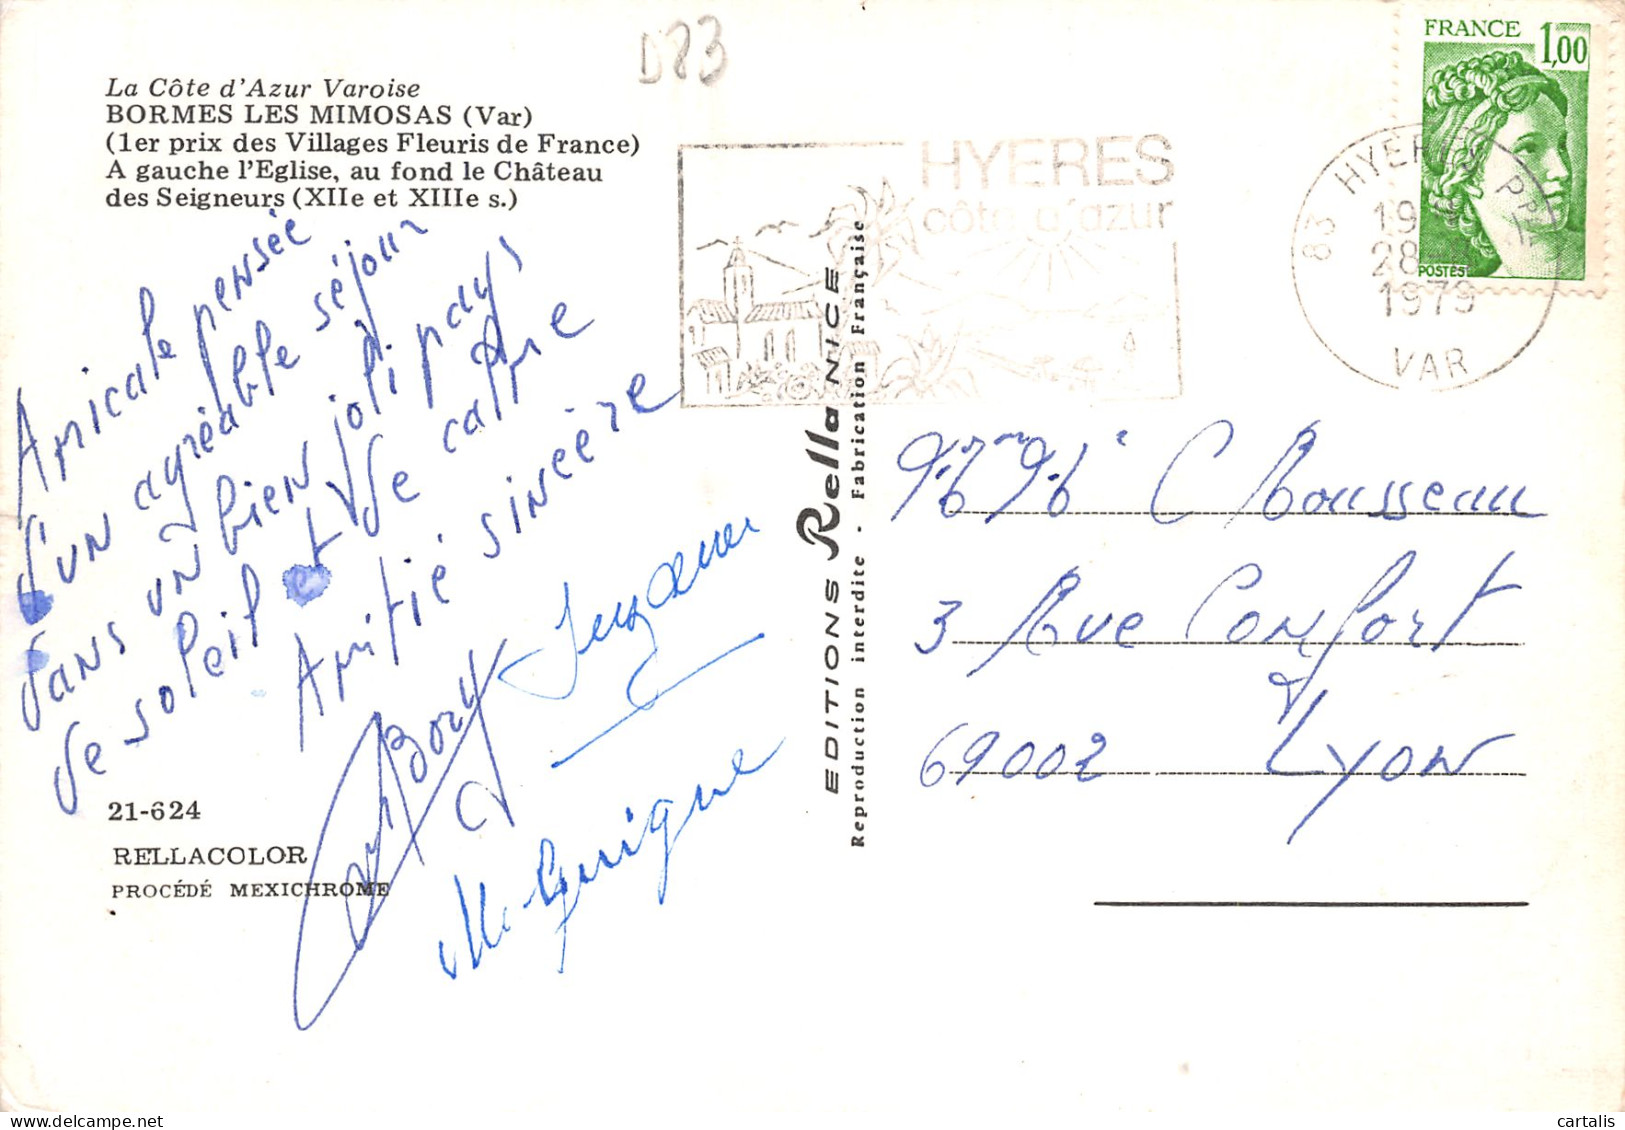 D83
La Côte d'Azur Varoise
BORMES LES MIMOSAS (Var)
(1er prix des Villages Fleuris de France)
A gauche l'Eglise, au fond le Château
des Seigneurs (XIIe et XIIIe s.)
HYERES
côte d'azur
FRANCE 1,00
POSTES
83 HYERES PPAL
28
1979
VAR
Amicale pensée
d'un agréable séjour
dans un bien joli pays
de soleil et de calme
Amitié sincère
Bory
M Guigne
21-624
RELLACOLOR
PROCÉDÉ MEXICHROME
EDITIONS Rella NICE
Reproduction interdite - Fabrication Française
C Rousseau
3 Rue Confort
69002 Lyon
cartalis